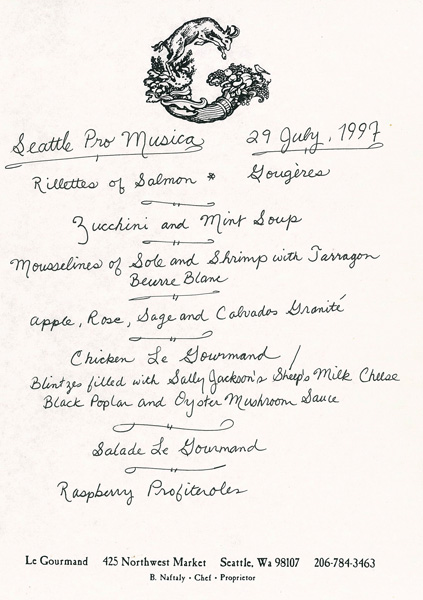 Seattle Pro Musica 29 July, 1997
Rillettes of Salmon * Gougères
Zucchini and Mint Soup
Mousselines of Sole and Shrimp with Tarragon
Beurre Blanc
Apple, Rose, Sage and Calvados Granité
Chicken Le Gourmand /
Blintzes filled with Sally Jackson's Sheep's Milk Cheese
Black Poplar and Oyster Mushroom Sauce
Salade Le Gourmand
Raspberry Profiteroles
Le Gourmand 425 Northwest Market Seattle, Wa 98107 206-784-3463
B. Naftaly · Chef · Proprietor